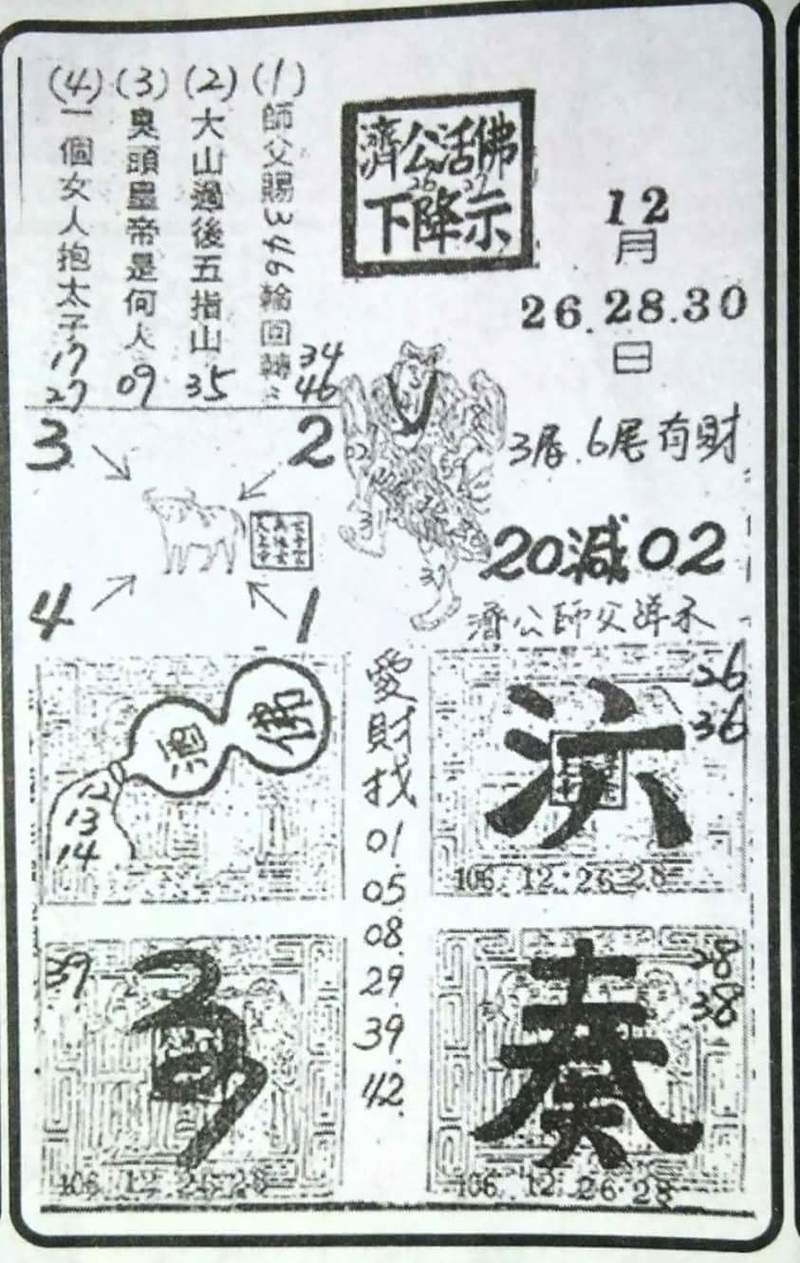 (1) 師父賜346輪回轉
34
46
(2) 大山過後五指山
35
(3) 臭頭皇帝是何人
09
(4) 一個女人抱太子
17
27
濟公活佛
26 27
下降示
12
月
26.28.30
日
3尾.6尾有財
20減02
3
2
4
1
02
31
佛
酒
12
13
14
愛財找
01
05
08
29
39
42
26
36
106.12.26.28
39
106.12.26.28
28
38
奏
106.12.26.28